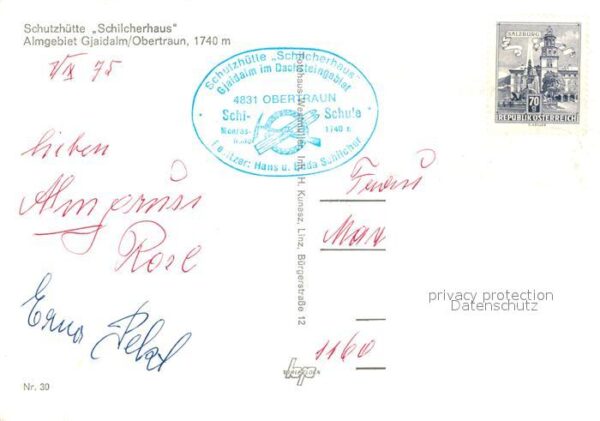 Schutzhütte „Schilcherhaus"
Almgebiet Gjaidalm/Obertraun, 1740 m
7/IX 75
Schutzhütte „Schilcherhaus"
Gjaidalm im Dachsteingebiet
4831 OBERTRAUN
Schi- Schule
1740 m
Besitzer: Hans u.
SALZBURG
70
REPUBLIK ÖSTERREICH
lieben
Almgruss
Rosl
Erna
Frau
Max
1160
H. Kunesz, Linz, Bürgerstraße 12
privacy protection
Datenschutz
Nr. 30